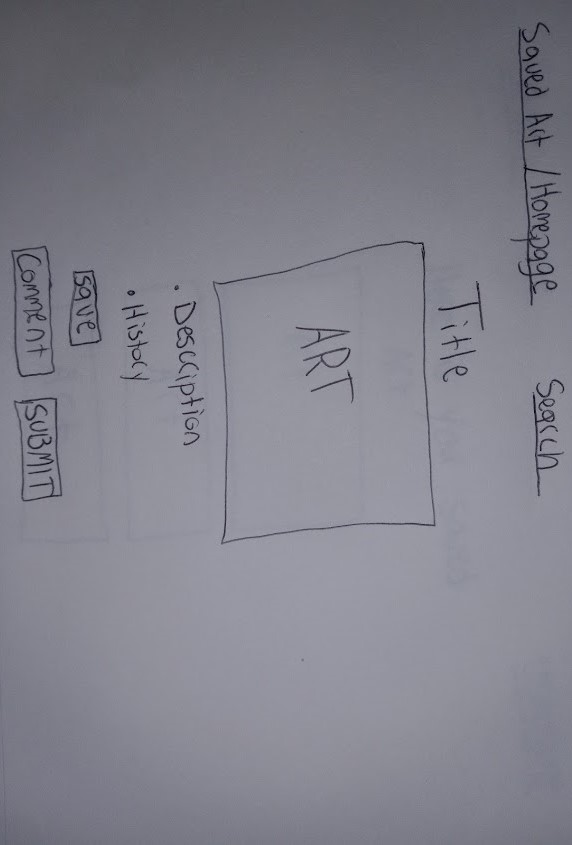 Saved Art / Homepage Search
Title
ART
. Description
. History
save
Comment SUBMIT